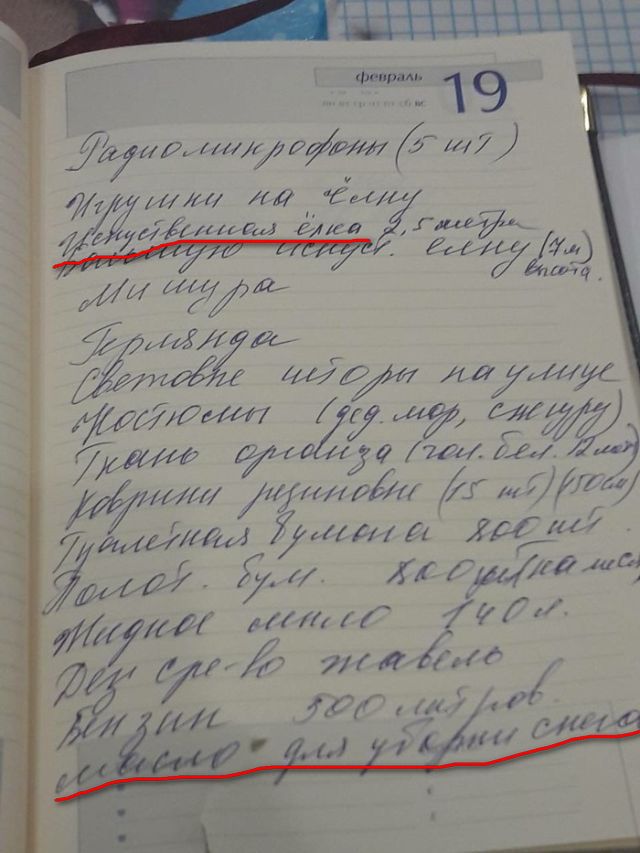 февраль 19
пн вт ср чт пт сб вс
Радиомикрофоны (5 шт)
Игрушки на ёлку
Искуственная ёлка 2,5 метра
Большую искуст. ёлку (7м)
высота.
Мишура
Герлянда
Световые шторы на улице
Костюмы (дед.мор, снегур)
Ткань органза (гол. бел. 12 мет)
Коврики резиновые (15 шт) (150см)
Туалетная бумага 800 шт.
Полот. бум. 800 шт (на меся
Жидкое мыло 140 л.
Дез ср-во жавель
Бензин 500 литров.
масло для уборки снега